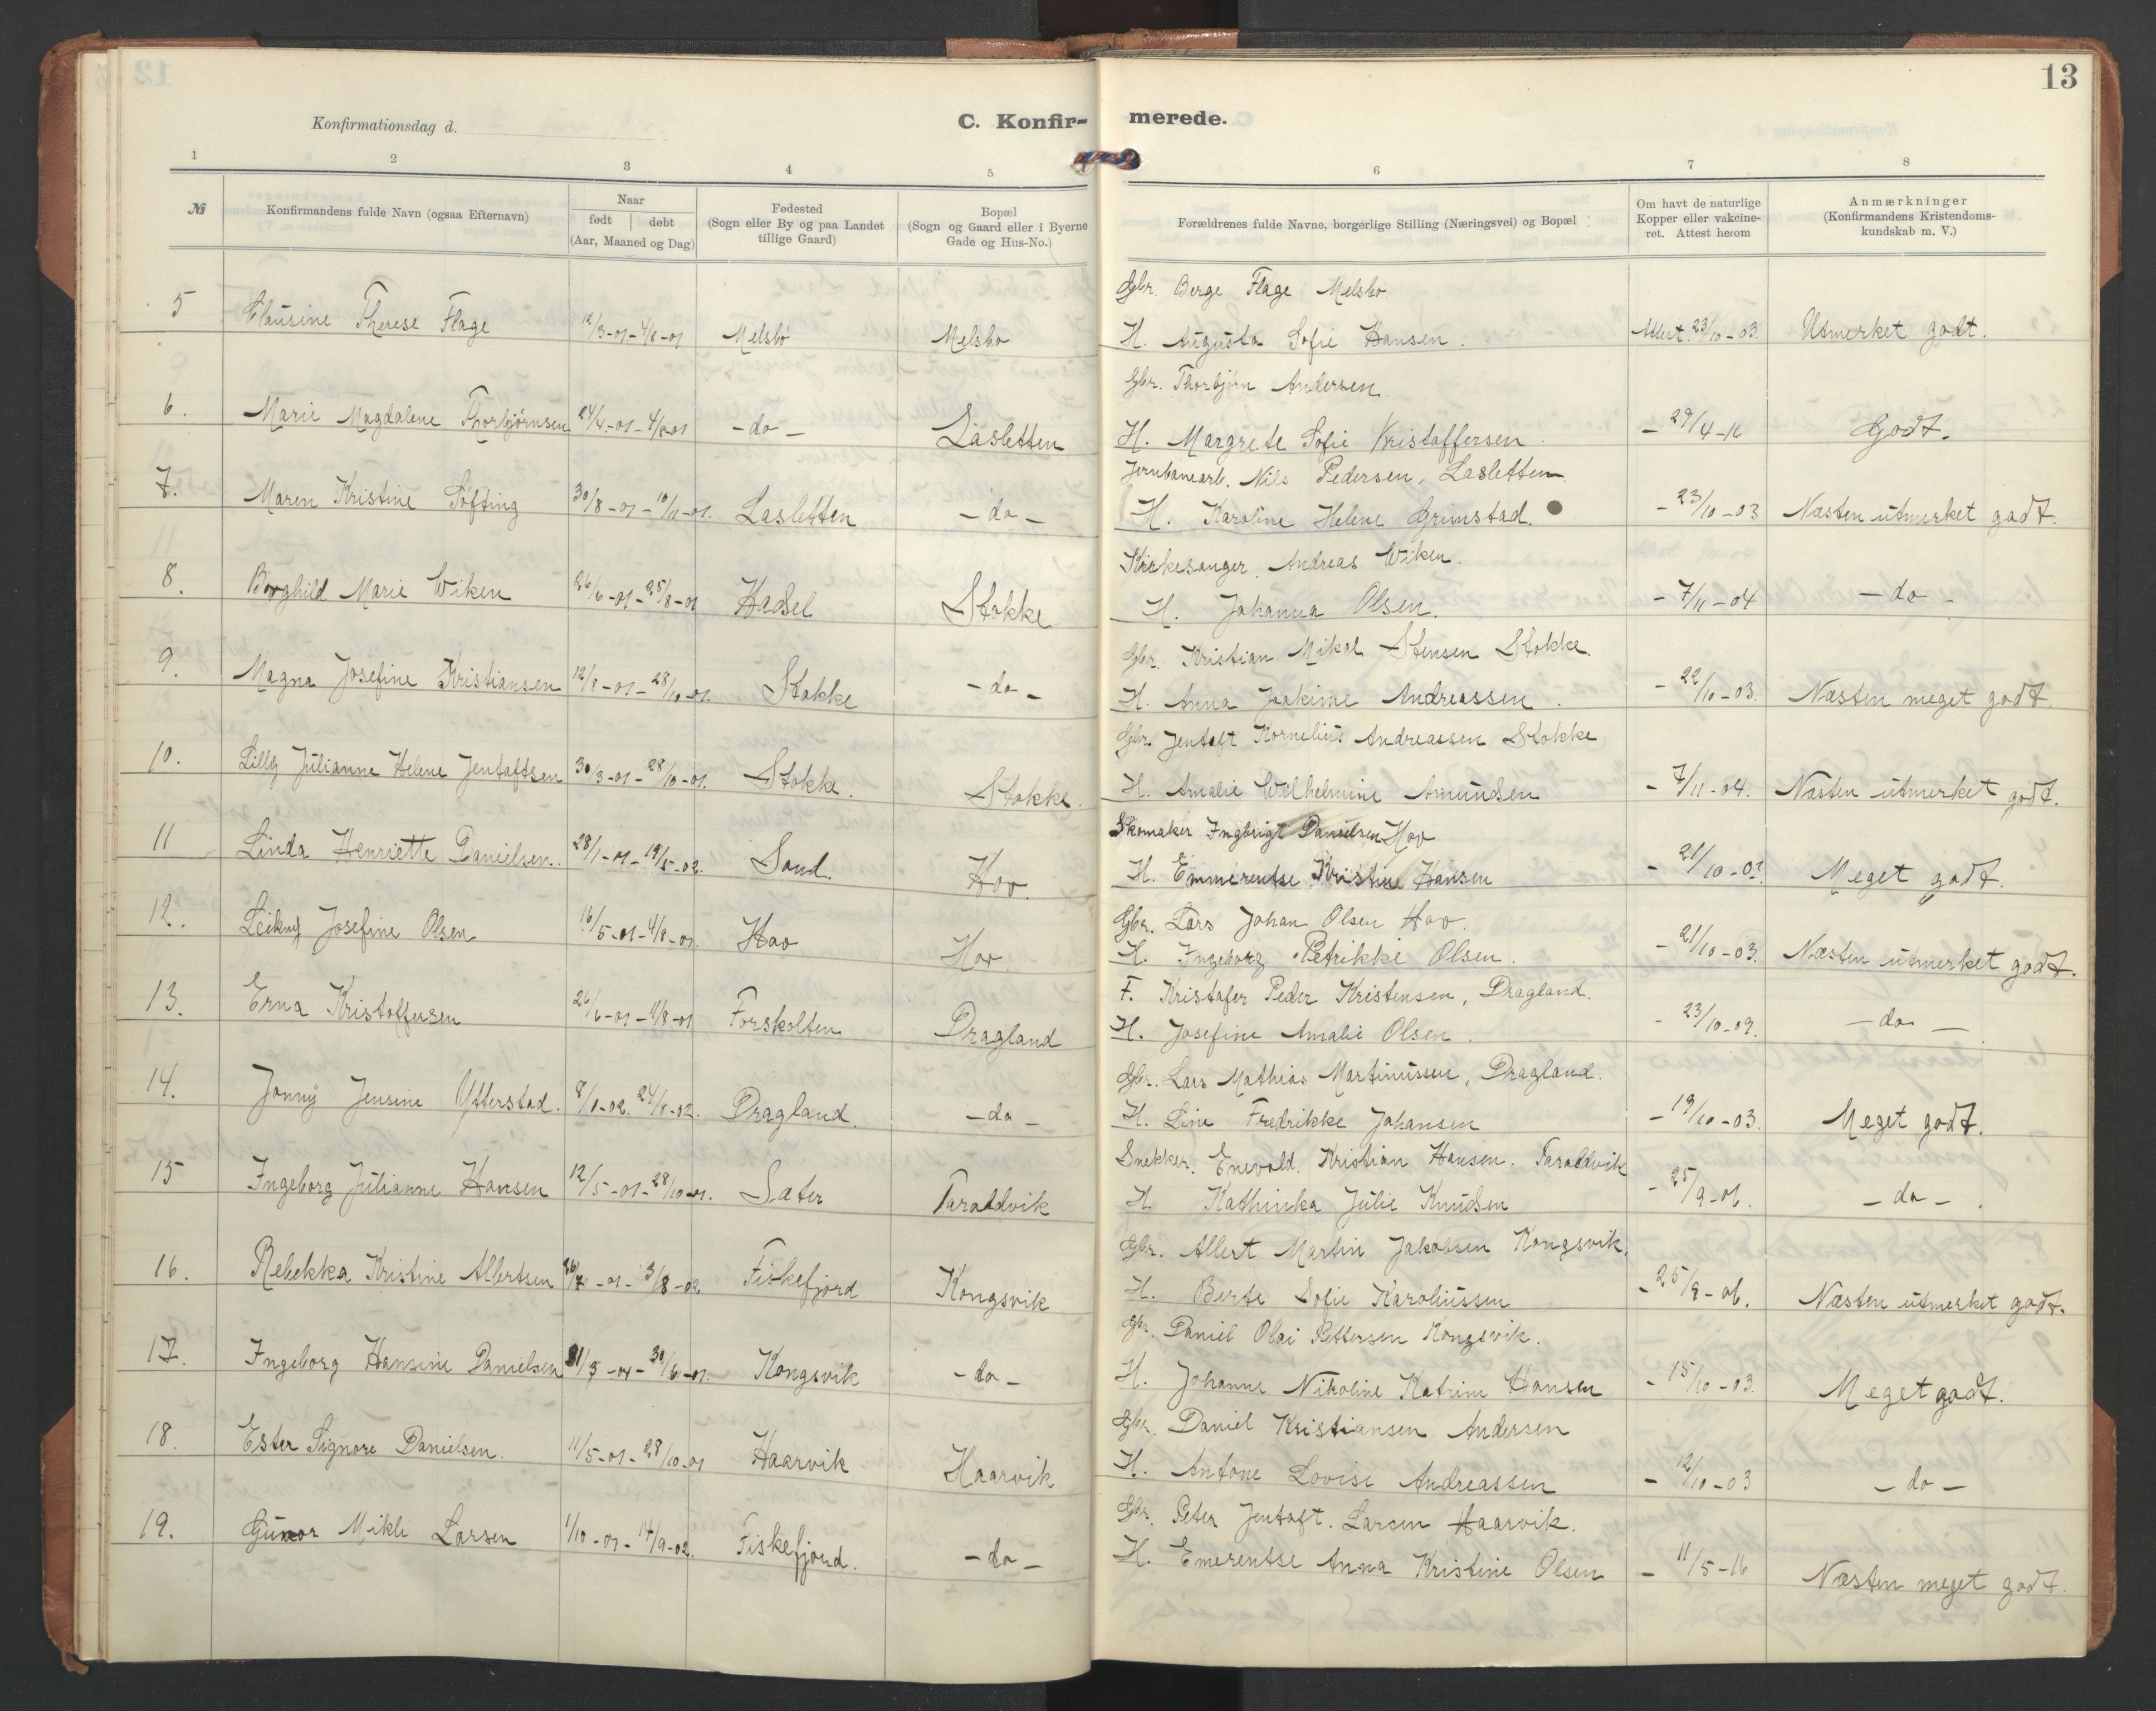 13
Konfirmationsdag d.
C. Konfir-
merede.
1 2 3 4 5 6 7 8
№
Konfirmandens fulde Navn (ogsaa Efternavn)
Naar
født | døbt
(Aar, Maaned og Dag)
Fødested
(Sogn eller By og paa Landet
tillige Gaard)
Bopæl
(Sogn og Gaard eller i Byerne
Gade og Hus-No.)
Forældrenes fulde Navne, borgerlige Stilling (Næringsvei) og Bopæl
Om havt de naturlige
Kopper eller vakcine-
ret. Attest herom
Anmærkninger
(Konfirmandens Kristendoms-
kundskab m. V.)
Gbr. Berge Flage Melsbo
5 Clausine Therese Flage 12/3-01-4/8-01 Melsbö Melsbo H. Augusta Sofie Hansen. Attest. 23/10-03. Utmerket godt.
Gbr. Thorbjörn Andersen
6. Marie Magdalene Thorbjörnsen 24/4-01-4/8-01 -do- Lasletten H. Margrete Sofie Kristoffersen. - 29/4-16 Godt.
Jernbanearb. Nils Pedersen, Lasletten
7. Maren Kristine Söfting 30/8-01-10/11-01. Lasletten -do- H. Karoline Helene Grimstad. - 23/10-03 Næsten utmerket godt.
Kirkesanger. Andreas Wiken.
8. Borghild Marie Wiken 26/6-01-25/8-01 Hadsel Stokke H. Johanna Olsen. - 7/11-04 -do-
Gbr. Kristian Mikal Stensen Stokke.
9. Magna Josefine Kristiansen 12/8-01-28/10-01. Stokke -do- H. Anna Joakime Andreassen. - 22/10-03. Næsten meget godt.
Gbr. Jentoft Kornelius Andreassen Stokke
10. Lilly Julianne Helene Jentoftsen 30/3-01-28/10-01. Stokke. Stokke. H. Amalie Wilhelmine Amundsen - 7/11-04. Næsten utmerket godt.
Skomaker Ingbrigt Danielsen Hov
11 Linda Henriette Danielsen. 28/1-01-19/5-02. Sand. Hov. H. Emmerentse Kristine Hansen - 21/10-03. Meget godt.
Gbr. Lars Johan Olsen Hov.
12. Leikny Josefine Olsen 16/5-01-4/8-01. Hov Hov. H. Ingeborg Petrikke Olsen. - 21/10-03. Næsten utmerket godt.
F. Kristofer Peder Kristensen, Dragland.
13. Erna Kristoffersen 26/6-01-4/8-01 Forskolten Dragland H. Josefine Amalie Olsen. - 23/10-09. -do-
Gbr. Lars Mathias Martinussen, Dragland.
14. Jonny Jensine Ytterstad. 8/1-02. 24/8-02. Dragland. -do- H. Line Fredrikke Johansen - 19/10-03. Meget godt.
Snekker. Enevold. Kristian Hansen. Taraldvik
15 Ingeborg Julianne Hansen 12/5-01-28/10-01. Sæter Taraldvik H. Kathinka Julie Knudsen - 25/9-06. -do-.
Gbr. Albert Martin Jakobsen Kongsvik.
16. Rebekka Kristine Albertsen -01-3/8-02 Fiskefjord Kongsvik H. Berte Sofie Karoliussen - 25/9-06. Næsten utmerket godt.
Gbr. Daniel Olai Pettersen Kongsvik.
17. Ingeborg Hansine Danielsen 31/3-01-30/6-01. Kongsvik -do- H. Johanne Nikoline Katrine Hansen - 15/10-03. Meget godt.
Gbr. Daniel Kristiansen Andersen
18. Ester Signore Danielsen. 11/5-01-28/10-01 Haarvik Haarvik H. Antone Lovise Andreassen - 12/10-03 -do-
Gbr. Peter Jentoft. Larsen Haarvik.
19. Gunor Mikli Larsen 1/10-01-14/9-02. Fiskefjord. -do- H. Emerentse Anna Kristine Olsen - 11/5-16 Næsten meget godt.